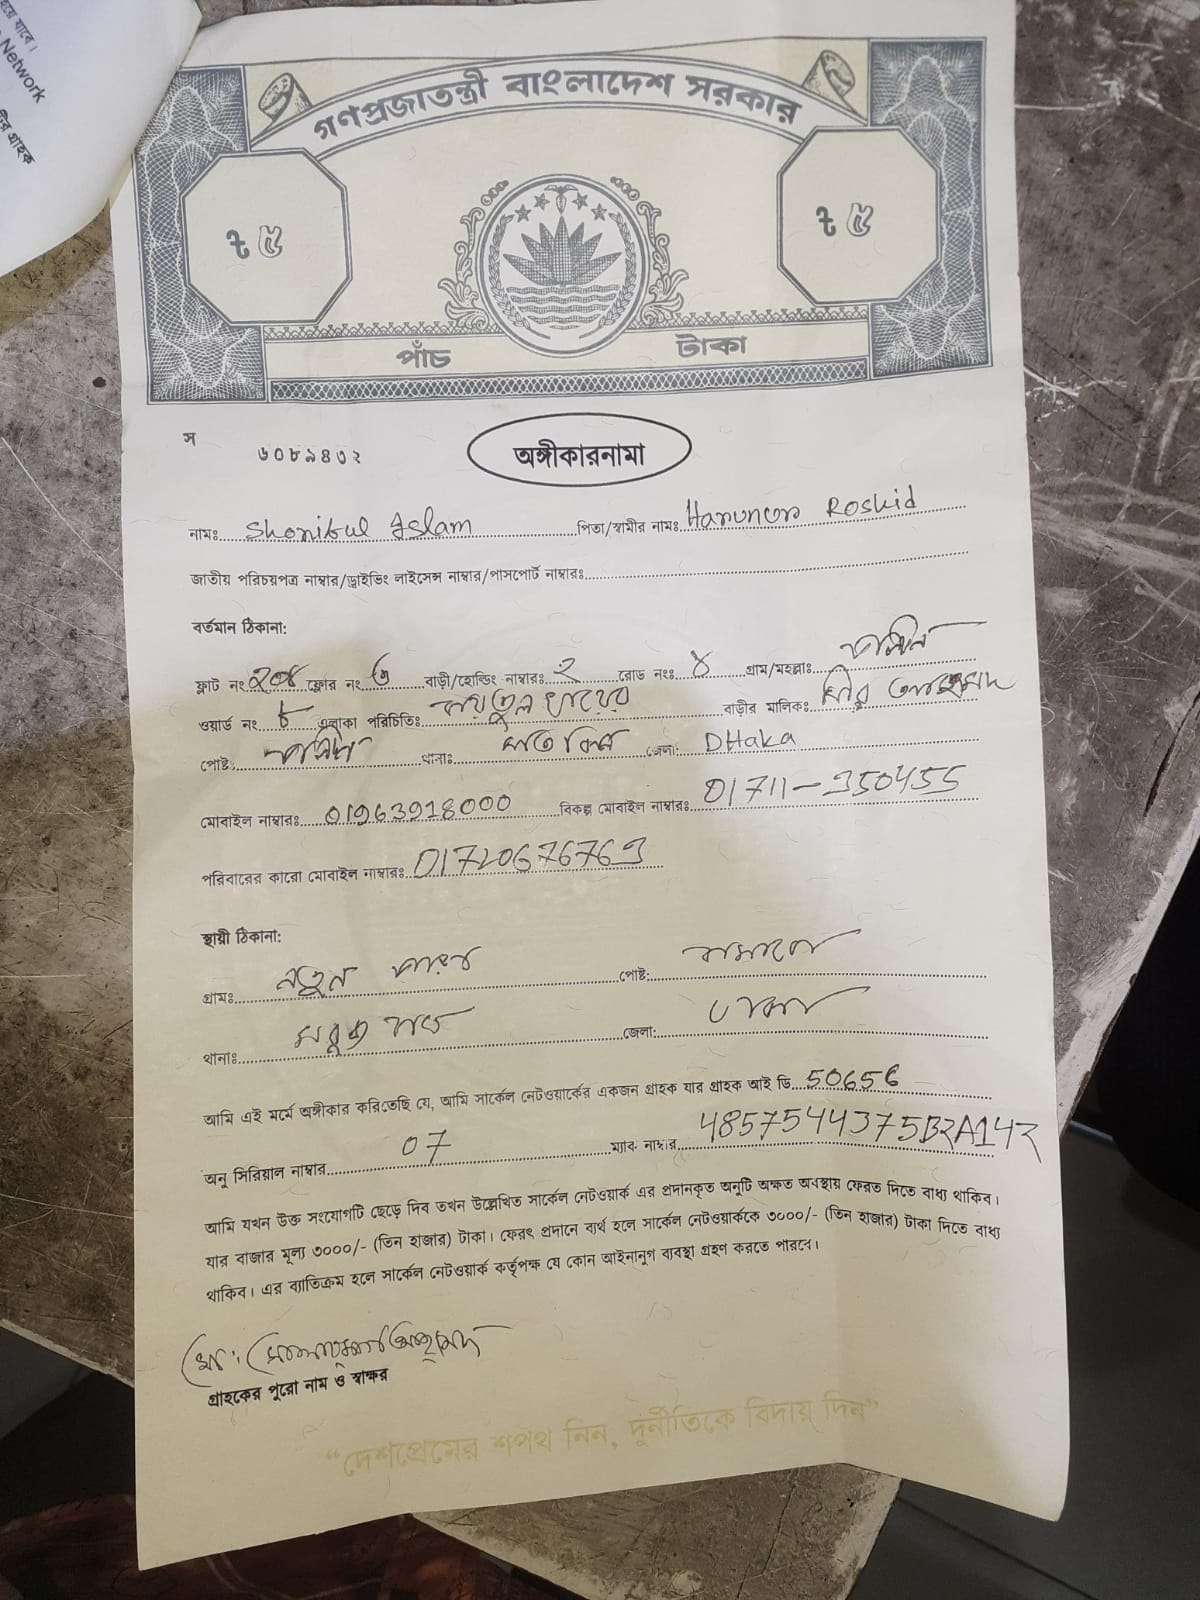 হয়ে যাবে।
Network
গণপ্রজাতন্ত্রী বাংলাদেশ সরকার
৳ ৫ ৳ ৫
পাঁচ টাকা
স
৬০৮৯৪৩২
অঙ্গীকারনামা
নামঃ Shoriful Islam পিতা/স্বামীর নামঃ Harunor Roshid
জাতীয় পরিচয়পত্র নাম্বার/ড্রাইভিং লাইসেন্স নাম্বার/পাসপোর্ট নাম্বারঃ
বর্তমান ঠিকানা:
ফ্লাট নং ফ্লোর নং ৬ বাড়ী/হোল্ডিং নাম্বারঃ ২ রোড নংঃ ৪ গ্রাম/মহল্লাঃ
ওয়ার্ড নং ৮ এলাকা পরিচিতিঃ বায়তুল খায়ের বাড়ীর মালিকঃ
পোষ্টঃ থানাঃ মতিঝিল জেলা: DHaka
মোবাইল নাম্বারঃ 01963918000 বিকল্প মোবাইল নাম্বারঃ 01711-350455
পরিবারের কারো মোবাইল নাম্বারঃ 01720676763
স্থায়ী ঠিকানা:
গ্রামঃ নতুন পোষ্ট:
থানাঃ সবুজ বাগ জেলা: ঢাকা
আমি এই মর্মে অঙ্গীকার করিতেছি যে, আমি সার্কেল নেটওয়ার্কের একজন গ্রাহক যার গ্রাহক আই ডি 50656
অনু সিরিয়াল নাম্বার 07 ম্যাক নাম্বার 4857544375B2A142
আমি যখন উক্ত সংযোগটি ছেড়ে দিব তখন উল্লেখিত সার্কেল নেটওয়ার্ক এর প্রদানকৃত অনুটি অক্ষত অবস্থায় ফেরত দিতে বাধ্য থাকিব।
যার বাজার মূল্য ৩০০০/- (তিন হাজার) টাকা। ফেরৎ প্রদানে ব্যর্থ হলে সার্কেল নেটওয়ার্ককে ৩০০০/- (তিন হাজার) টাকা দিতে বাধ্য
থাকিব। এর ব্যাতিক্রম হলে সার্কেল নেটওয়ার্ক কর্তৃপক্ষ যে কোন আইনানুগ ব্যবস্থা গ্রহণ করতে পারবে।
মো:
গ্রাহকের পুরো নাম ও স্বাক্ষর
“দেশপ্রেমের শপথ নিন, দুর্নীতিকে বিদায় দিন”